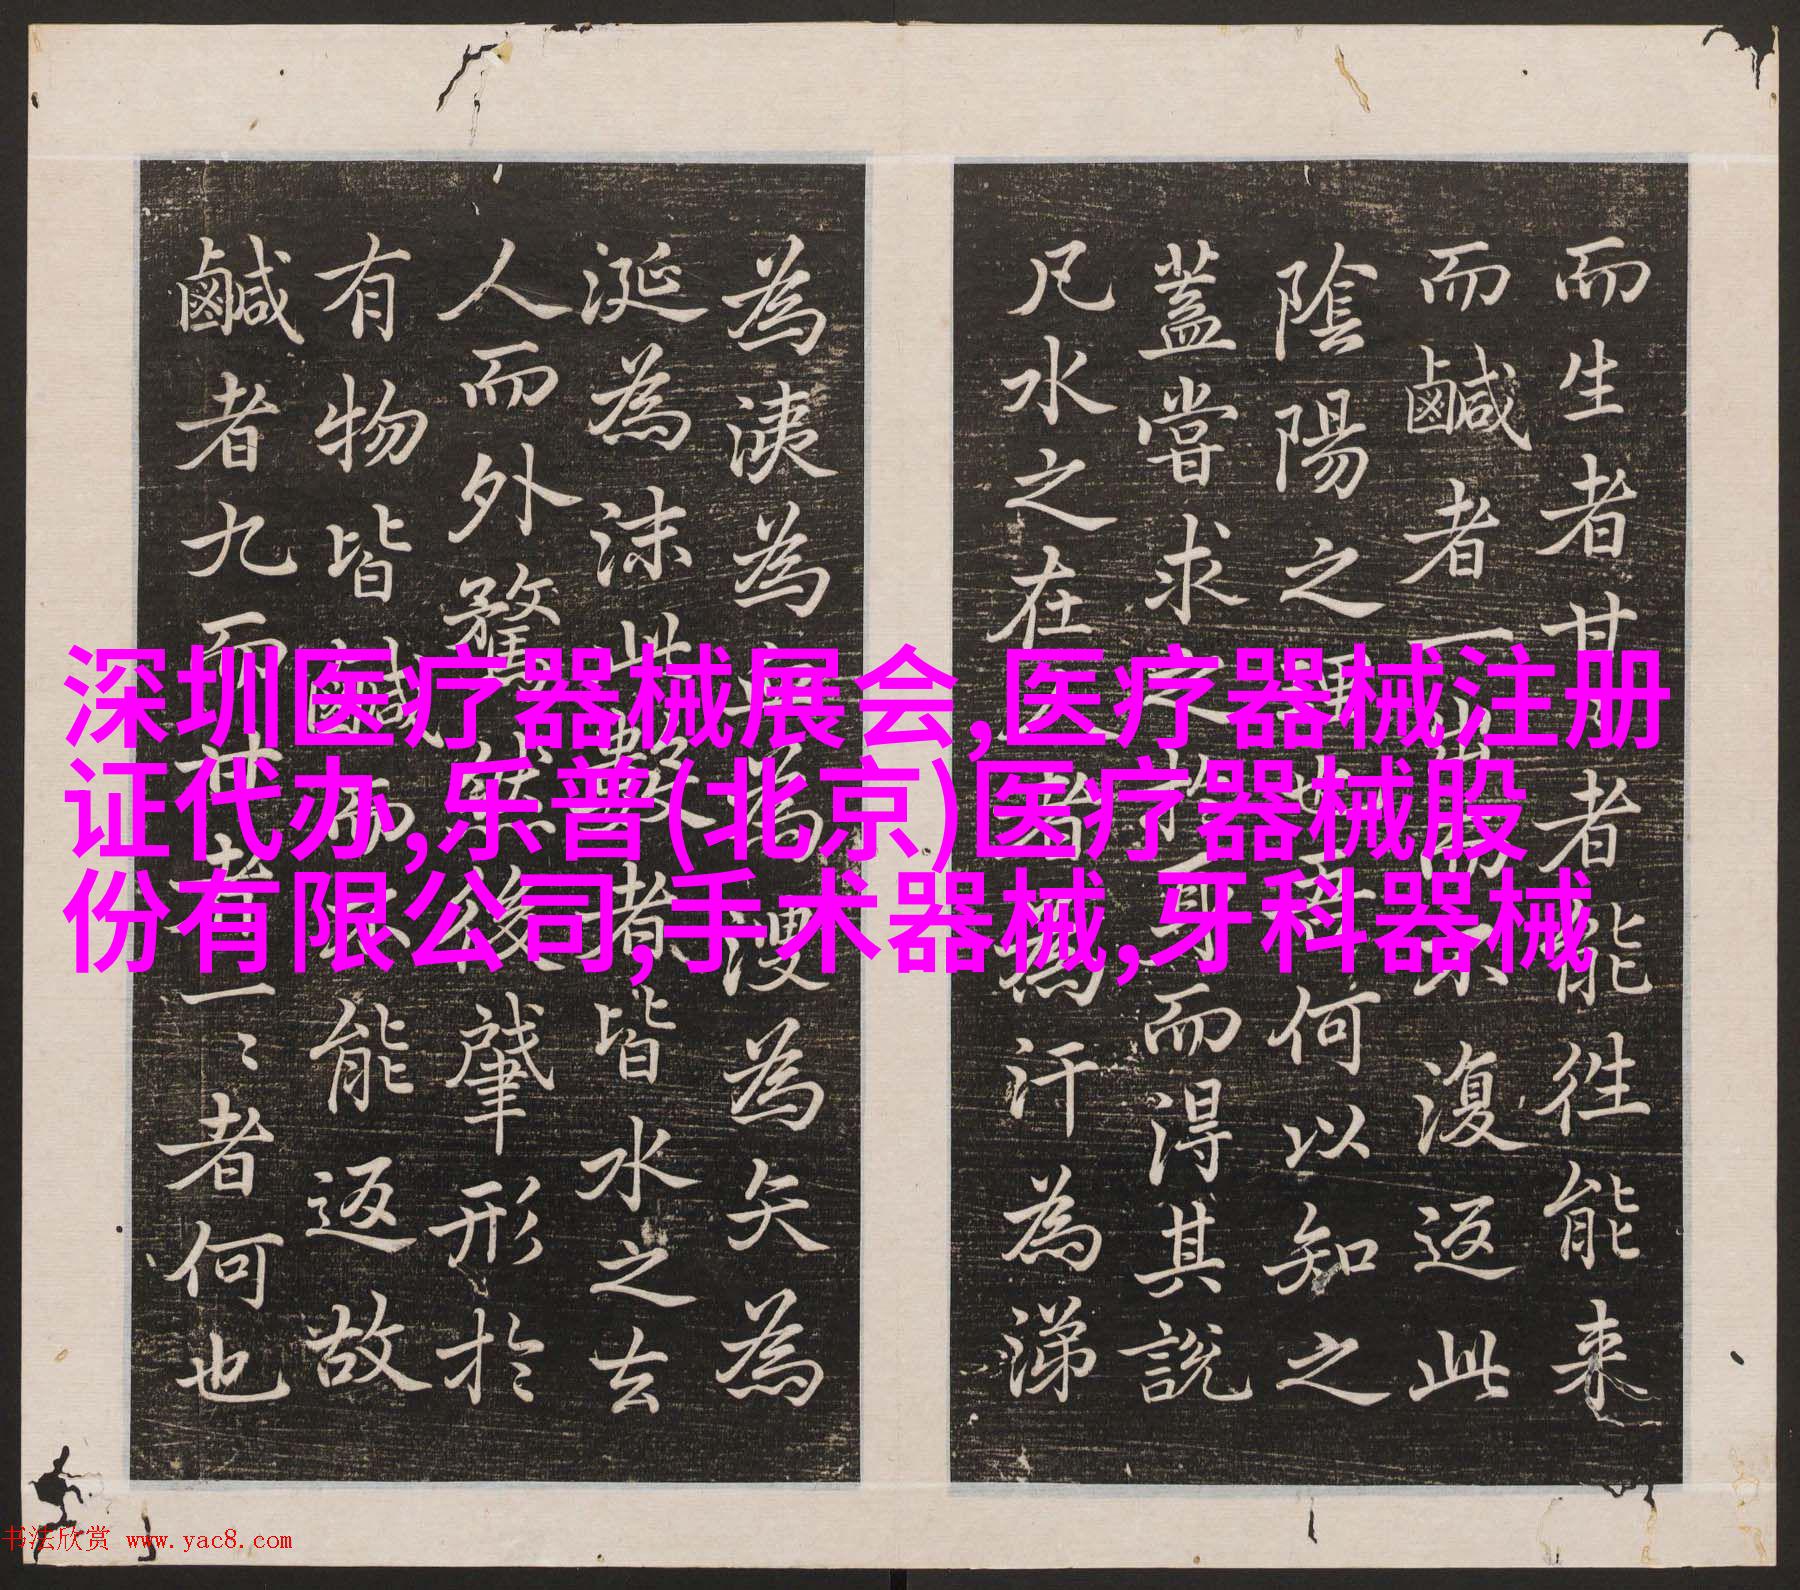 深圳医疗器械展会,医疗器械注册
证代办,乐普(北京)医疗器械股
份有限公司,手术器械,牙科器械
而生者甘者能往能来
而鹹者一不澓返此
陰陽之何以知之
蓋嘗求之於身而得其說
凡水之在者為汗為涕
為洟為為溲為矢為
涎為沫此數者皆水之去
人而外騖然後肈形於
有物皆鹹能返故
鹹者九而甘者一〻者何也
书法欣赏 www.yac8.com